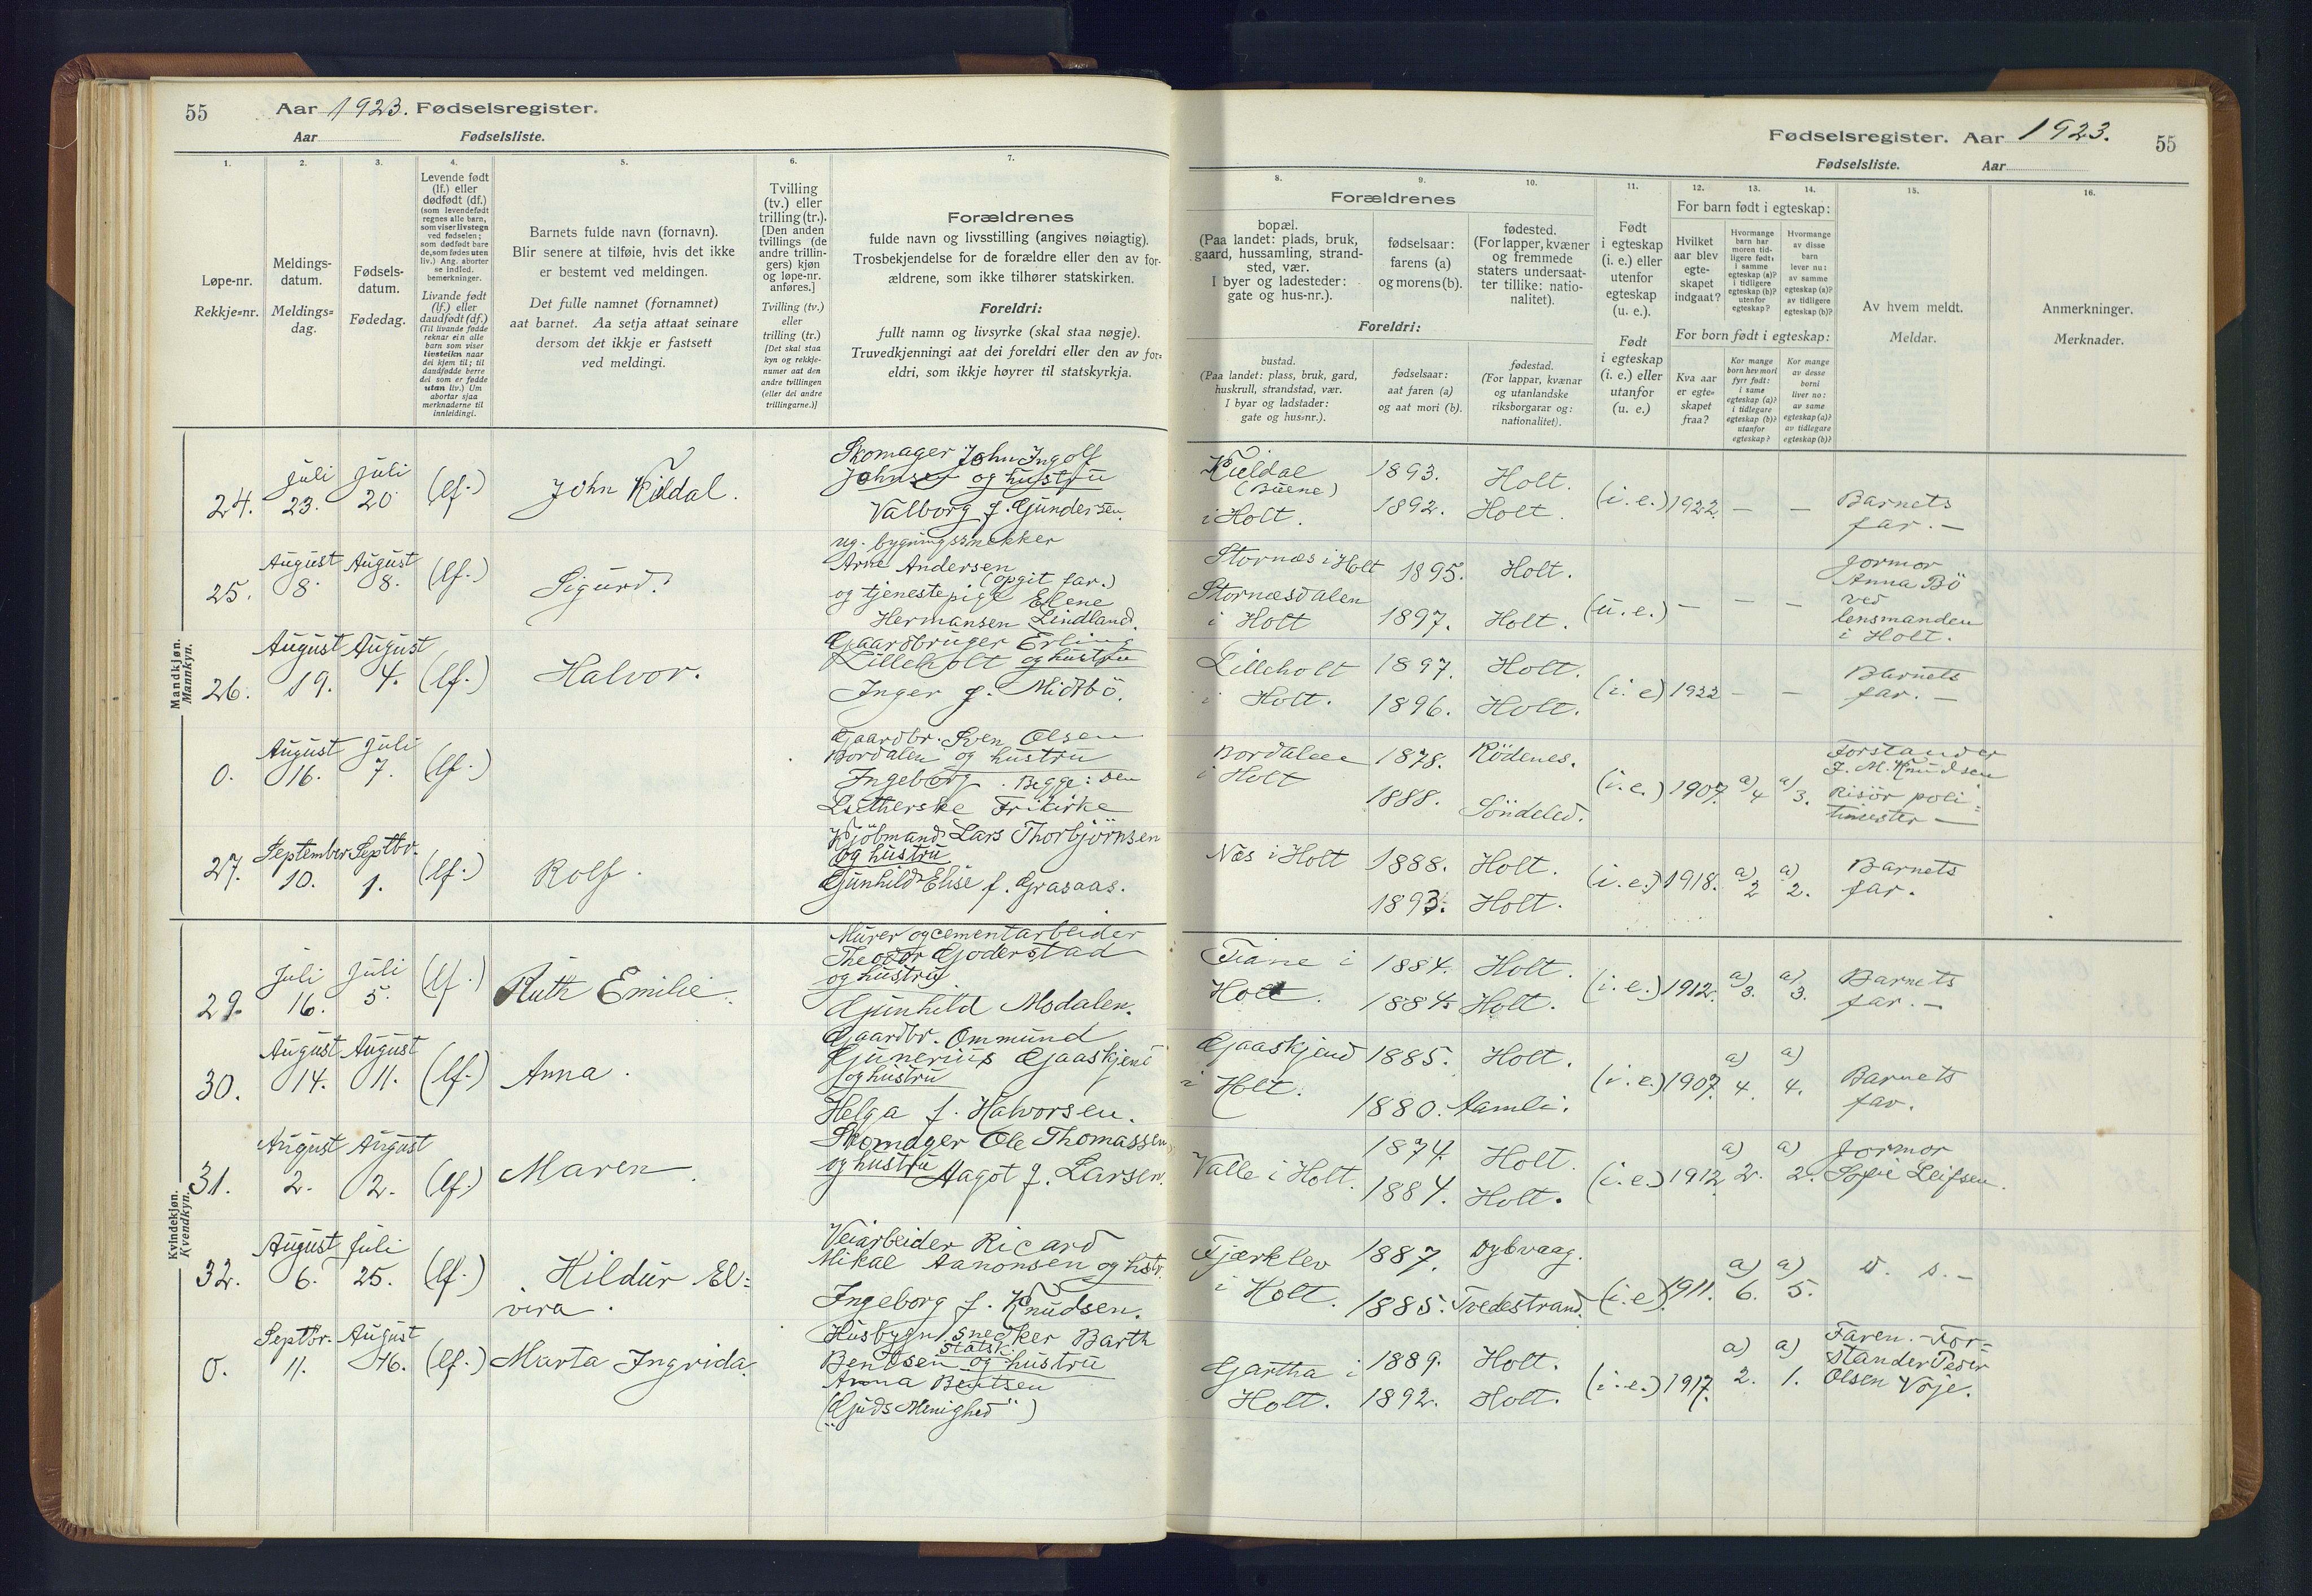 55 Aar 1923. Fødselsregister.
Aar Fødselsliste.
1. 2. 3. 4. 5. 6. 7.
Løpe-nr.
Rekkje-nr.
Meldings-
datum.
Meldings-
dag.
Fødsels-
datum.
Fødedag.
Levende født
(lf.) eller
dødfødt (df.)
(som levendefødt
regnes alle barn,
som viser livstegn
ved fødselen;
som dødfødt bare
de, som fødes uten
liv.) Ang. aborter
se indled.
bemerkninger.
Livande født
(lf.) eller
daudfødt (df.)
(Til livande fødde
reknar ein alle
barn som viser
livsteikn naar
dei kjem til; til
daudfødde berre
dei som er fødde
utan liv.) Um
abortar sjaa
merknaderne til
innleidingi.
Barnets fulde navn (fornavn).
Blir senere at tilføie, hvis det ikke
er bestemt ved meldingen.
Det fulle namnet (fornamnet)
aat barnet. Aa setja attaat seinare
dersom det ikkje er fastsett
ved meldingi.
Tvilling
(tv.) eller
trilling (tr.).
[Den anden
tvillings (de
andre trillin-
gers) kjøn
og løpe-nr.
anføres.]
Tvilling (tv.)
eller
trilling (tr.)
[Det skal staa
kyn og rekkje-
numer aat den
andre tvillingen
(eller dei andre
trillingarne.)]
Forældrenes
fulde navn og livsstilling (angives nøiagtig).
Trosbekjendelse for de forældre eller den av for-
ældrene, som ikke tilhører statskirken.
Foreldri:
fullt namn og livsyrke (skal staa nøgje).
Truvedkjenningi aat dei foreldri eller den av for-
eldri, som ikkje høyrer til statskyrkja.
Mandkjøn.
Mannkyn.
24. juli 23. juli 20 (lf.) John Kildal.
Skomager John Ingolf
Johnsen og hustru
Valborg f. Gundersen.
25. August 8. August 8. (lf.) Sigurd.
ug. bygningssnekker
Arne Andersen
(opgit far.)
og tjenestepige Elene
Hermansen Lindland.
26. August 19. August 4. (lf.) Halvor.
Gaardbruger Erling
Lilleholt og hustru
Inger f. Midtbö.
0. August 16. Juli 7. (lf.)
Gaardbr. Sven Olsen
Bordalen og hustru
Ingeborg. Begge: den
Lutherske Frikirke
27. September 10. Septbr. 1. (lf.) Rolf.
Kjöbmand Lars Thorbjörnsen
og hustru
Gunhild Elise f. Grasaas.
Kvindekjøn.
Kvendkyn.
29. Juli 16. Juli 5. (lf.) Ruth Emilie.
Murer og cementarbeider
Theodor Goderstad
og hustru
Gunhild Modalen.
30. August 14. August 11. (lf.) Anna.
Gaardbr. Ommund
Gunerius Gaaskjend
og hustru
Helga f. Halvorsen.
31. August 2. August 2. (lf.) Maren.
Skomager Ole Thomassen
og hustru Aagot f. Larsen.
32. August 6. Juli 25. (lf.) Hildur El=
vira.
Veiarbeider Ricard
Mikal Aanonsen og hstr.
Ingeborg f. Knudsen.
0. Septbr. 11. August 16. (lf.) Marta Ingrida.
Husbygn. snedker Barth
Bendsen statsk. og hustru
Anna Bentsen
("Guds Menighed")
Fødselsregister. Aar 1923. 55
Fødselsliste. Aar
8. 9. 10. 11. 12. 13. 14. 15. 16.
Forældrenes
bopæl.
(Paa landet: plads, bruk,
gaard, hussamling, strand-
sted, vær.
I byer og ladesteder:
gate og hus-nr.).
fødselsaar:
farens (a)
og morens (b).
fødested.
(For lapper, kvæner
og fremmede
staters undersaat-
ter tillike: natio-
nalitet).
Foreldri:
bustad.
(Paa landet: plass, bruk, gard,
huskrull, strandstad, vær.
I byar og ladstader:
gate og hus-nr.).
fødselsaar:
aat faren (a)
og aat mori (b).
fødestad.
(For lappar, kvænar
og utanlandske
riksborgarar og:
nationalitet).
Født
i egteskap
(i. e.) eller
utenfor
egteskap
(u. e.).
Født
i egteskap
(i. e.) eller
utanfor
(u. e.)
For barn født i egteskap:
Hvilket
aar blev
egte-
skapet
indgaat?
Hvormange
barn har
moren tid-
ligere født:
i samme
egteskap (a)?
i tidligere
egteskap (b)?
utenfor
egteskap?
Hvormange
av disse
barn
lever nu:
av samme
egteskap (a)?
av tidligere
egteskap (b)?
For born født i egteskap:
Kva aar
er egte-
skapet
fraa?
Kor mange
born hev mori
fyrr født:
i same
egteskap (a)?
i tidlegare
egteskap (b)?
utanfor
egteskap?
Kor mange
av desse
borni
liver no:
av same
egteskap (a)?
av tidlegare
egteskap (b)?
Av hvem meldt.
Meldar.
Anmerkninger.
Merknader.
Kildal
(Buene)
i Holt.
1893. Holt.
1892. Holt.
(i. e.) 1922. — — Barnets
far. —
Stornæs i Holt 1895. Holt.
Stornæsdalen
i Holt 1897. Holt. (u. e.) — — —
Jormor
Anna Bö
ved
lensmanden
i Holt.
Lilleholt 1897. Holt.
i Holt. 1896. Holt. (i. e) 1922 — — Barnets
far. —
Bordalen 1878. Rödenes.
i Holt 1888. Söndeled. (i. e.) 1907. a) 4 a) 3.
Forstander
J. M. Knudsen
Risör poli=
timester —
Næs i Holt 1888. Holt.
1893. Holt. (i. e.) 1918. a) 2 a) 2. Barnets
far.
Fiane i 1884. Holt.
Holt. 1884. Holt. (i. e.) 1912. a) 3. a) 3. Barnets
far. —
Gaaskjend 1885. Holt.
i Holt. 1880. Aamli. (i. e.) 1907. a) 4. a) 4. Barnets
far.
Valle i Holt. 1874. Holt.
1884. Holt. (i. e.) 1912 a) 2. a) 2. Jormor
Sofie Leifsen.
Fjærklev 1887. Dybvaag.
i Holt. 1885. Tvedestrand. (i. e.) 1911. a) 6. a) 5. d. s. —
Gartha i 1889. Holt.
Holt. 1892. Holt. (i. e.) 1917. a) 2. a) 1.
Faren. - For=
stander Peder
Olsen Voje.